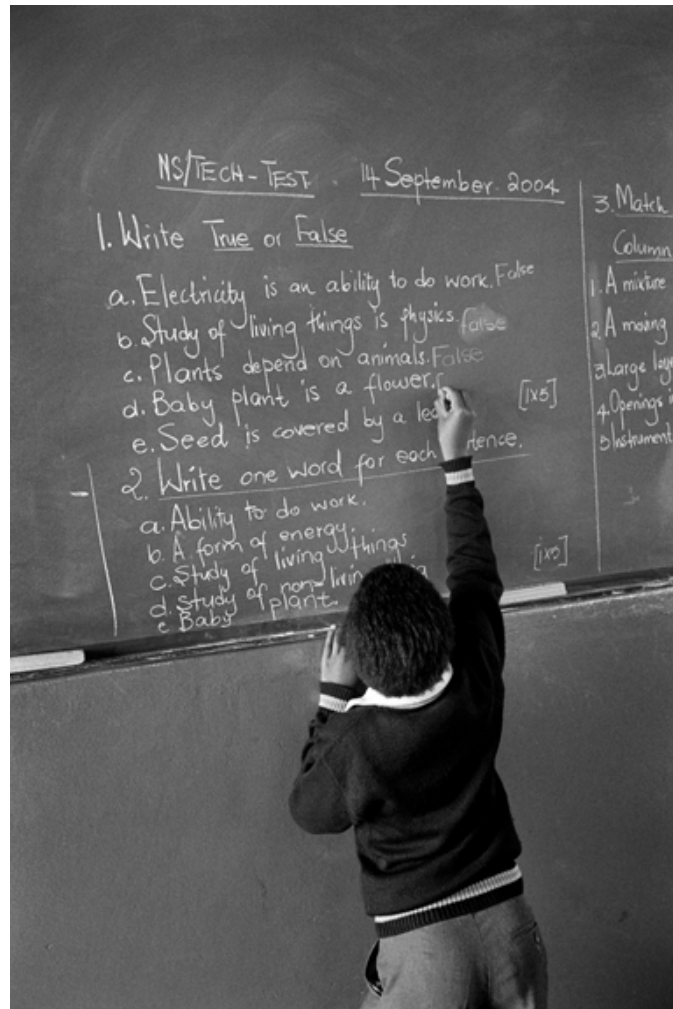 NS/TECH - TEST. 14 September. 2004
1. Write True or False
a. Electricity is an ability to do work. False
b. Study of living things is physics. False
c. Plants depend on animals. False
d. Baby plant is a flower.
e. Seed is covered by a
[1x5]
2. Write one word for each
a. Ability to do work.
b. A form of energy.
c. Study of living things
d. Study of non-living
e. Baby plant.
[1x5]
3. Match
Column
1. A mixture
2. A moving
3. Large
4. Openings
5. Instrument